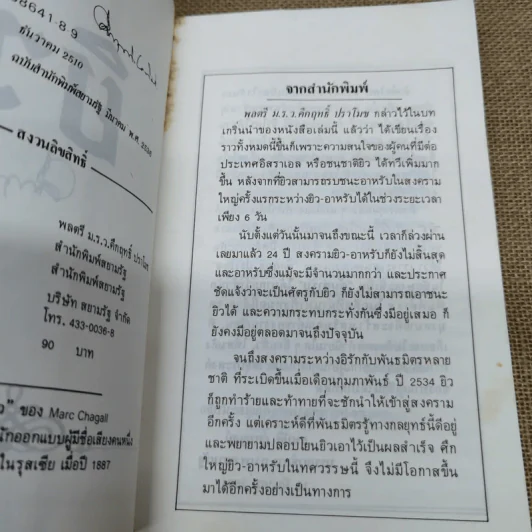 8641-8 9
ธันวาคม 2510
ฉบับสำนักพิมพ์สยามรัฐ มีนาคม พ.ศ. 2536
สงวนลิขสิทธิ์
พลตรี ม.ร.ว.คึกฤทธิ์ ปราโมช
สำนักพิมพ์สยามรัฐ
สำนักพิมพ์สยามรัฐ
บริษัท สยามรัฐ จำกัด
โทร. 433-0036-8
90 บาท
ว" ของ Marc Chagall
นักออกแบบผู้มีชื่อเสียงคนหนึ่ง
ในรุสเซีย เมื่อปี 1887
จากสำนักพิมพ์
พลตรี ม.ร.ว.คึกฤทธิ์ ปราโมช กล่าวไว้ในบท
เกริ่นนำของหนังสือเล่มนี้ แล้วว่า ได้เขียนเรื่อง
ราวทั้งหมดนี้ขึ้นก็เพราะความสนใจของผู้คนที่มีต่อ
ประเทศอิสราเอล หรือชนชาติยิว ได้ทวีเพิ่มมาก
ขึ้น หลังจากที่ยิวสามารถรบชนะอาหรับในสงคราม
ใหญ่ครั้งแรกระหว่างยิว-อาหรับได้ในช่วงระยะเวลา
เพียง 6 วัน
นับตั้งแต่วันนั้นมาจนถึงขณะนี้ เวลาก็ล่วงผ่าน
เลยมาแล้ว 24 ปี สงครามยิว-อาหรับก็ยังไม่สิ้นสุด
และอาหรับซึ่งแม้จะมีจำนวนมากกว่า และประกาศ
ชัดแจ้งว่าจะเป็นศัตรูกับยิว ก็ยังไม่สามารถเอาชนะ
ยิวได้ และความกระทบกระทั่งกันซึ่งมีอยู่เสมอ ก็
ยังคงมีอยู่ตลอดมาจนถึงปัจจุบัน
จนถึงสงครามระหว่างอิรักกับพันธมิตรหลาย
ชาติ ที่ระเบิดขึ้นเมื่อเดือนกุมภาพันธ์ ปี 2534 ยิว
ก็ถูกทำร้ายและท้าทายที่จะชักนำให้เข้าสู่สงคราม
อีกครั้ง แต่เคราะห์ดีที่พันธมิตรรู้ทางกลยุทธ์นี้ดีอยู่
และพยายามปลอบโยนยิวเอาไว้เป็นผลสำเร็จ ศึก
ใหญ่ยิว-อาหรับในทศวรรษนี้ จึงไม่มีโอกาสขึ้น
มาได้อีกครั้งอย่างเป็นทางการ